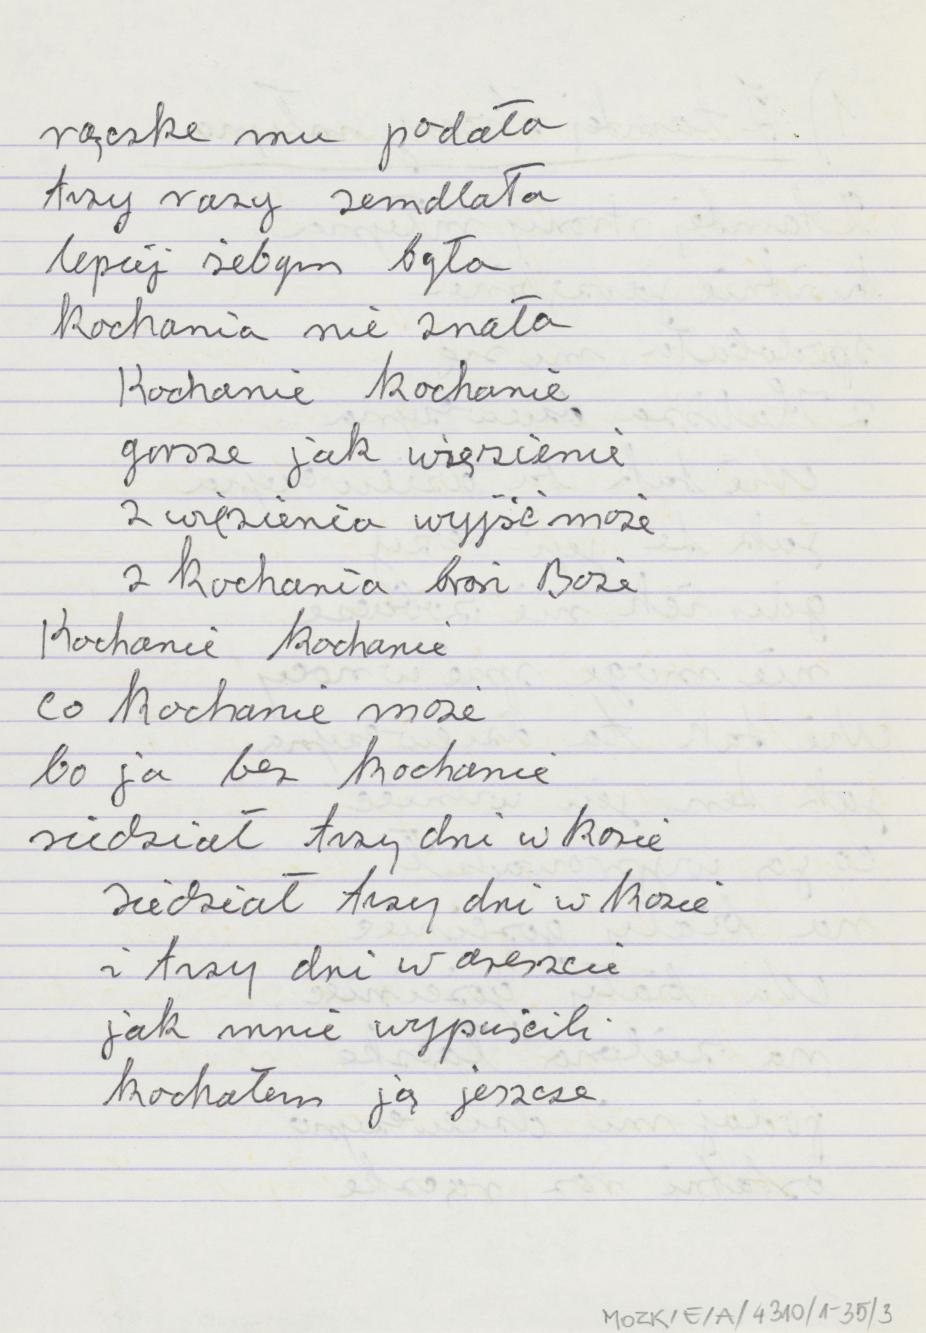 rączke mu podała
trzy razy zemdlała
lepiej żebym była
kochania nie znała
Kochanie kochanie
gorsze jak więzienie
z więzienia wyjść może
z kochania broń Boże
Kochanie kochanie
co kochanie może
bo ja bez kochanie
siedział trzy dni w kozie
siedział trzy dni w kozie
i trzy dni w areszcie
jak mnie wypuścili
kochałem ją jeszcze
MOZK/E/A/4310/1-35/3